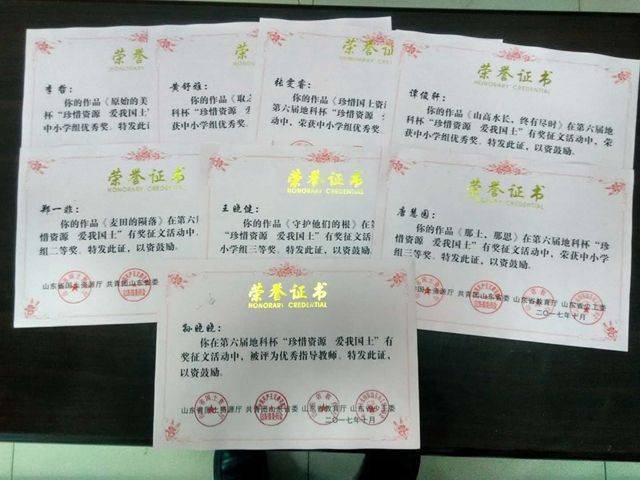 荣誉证书
HONORARY
李哲：
你的作品《原始的美
杯“珍惜资源 爱我国土”
中小学组优秀奖。特发此
荣誉证
HONORARY
黄舒雅：
你的作品《取之
科杯“珍惜资源 爱
获中小学组优秀奖。
荣誉证
HONORARY CRED
张雯睿：
你的作品《珍惜国土资
第六届地科杯“珍惜
动中，荣获中小学组
荣誉证书
HONORARY CREDENTIAL
谭俊轩：
你的作品《山高水长，终有尽时》在第六届地
科杯“珍惜资源 爱我国土”有奖征文活动中，荣
获中小学组优秀奖。特发此证，以资鼓励。
荣誉证书
HONORARY CREDENTIAL
郑一非：
你的作品《麦田的陨落》在第六
惜资源 爱我国土”有奖征文活动中，
组二等奖。特发此证，以资鼓励。
山东省国土资源厅 共青团山东省委
荣誉证书
HONORARY CREDENTIAL
王晓健：
你的作品《守护他们的根》在第
“珍惜资源 爱我国土”有奖征文活
小学组三等奖。特发此证，以资鼓励。
荣誉证书
HONORARY CREDENTIAL
你的作品《那土，那恩》在第六届地科杯“珍
惜资源 爱我国土”有奖征文活动中，荣获中小学
组三等奖。特发此证，以资鼓励。
山东省教育厅 山东省少工委
二〇一七年十月
荣誉证书
HONORARY CREDENTIAL
孙晓晓：
你在第六届地科杯“珍惜资源 爱我国土”有
奖征文活动中，被评为优秀指导教师。特发此证，
以资鼓励。
山东省国土资源厅 共青团山东省委 山东省教育厅 山东省少工委
二〇一七年十月